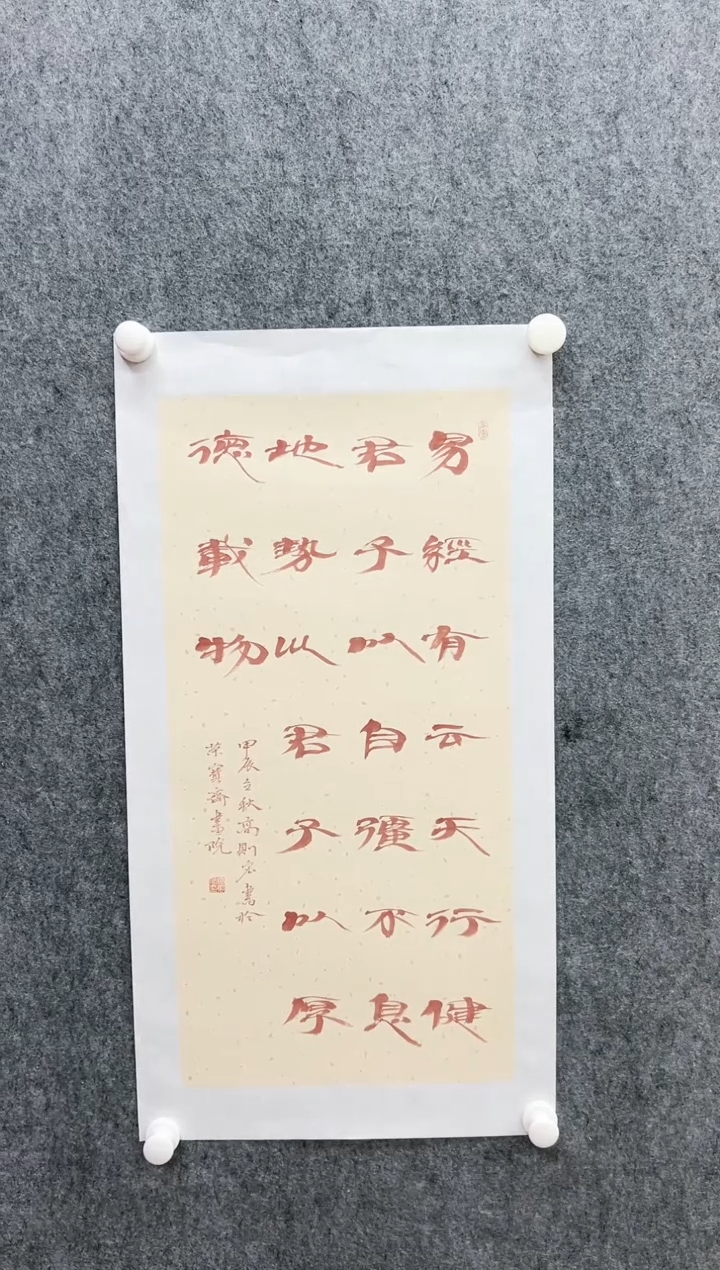 易經有云天行健
君子以自彊不息
地勢巛君子以厚
德載物
甲辰立秋高則宏書於
榮寶齋書院